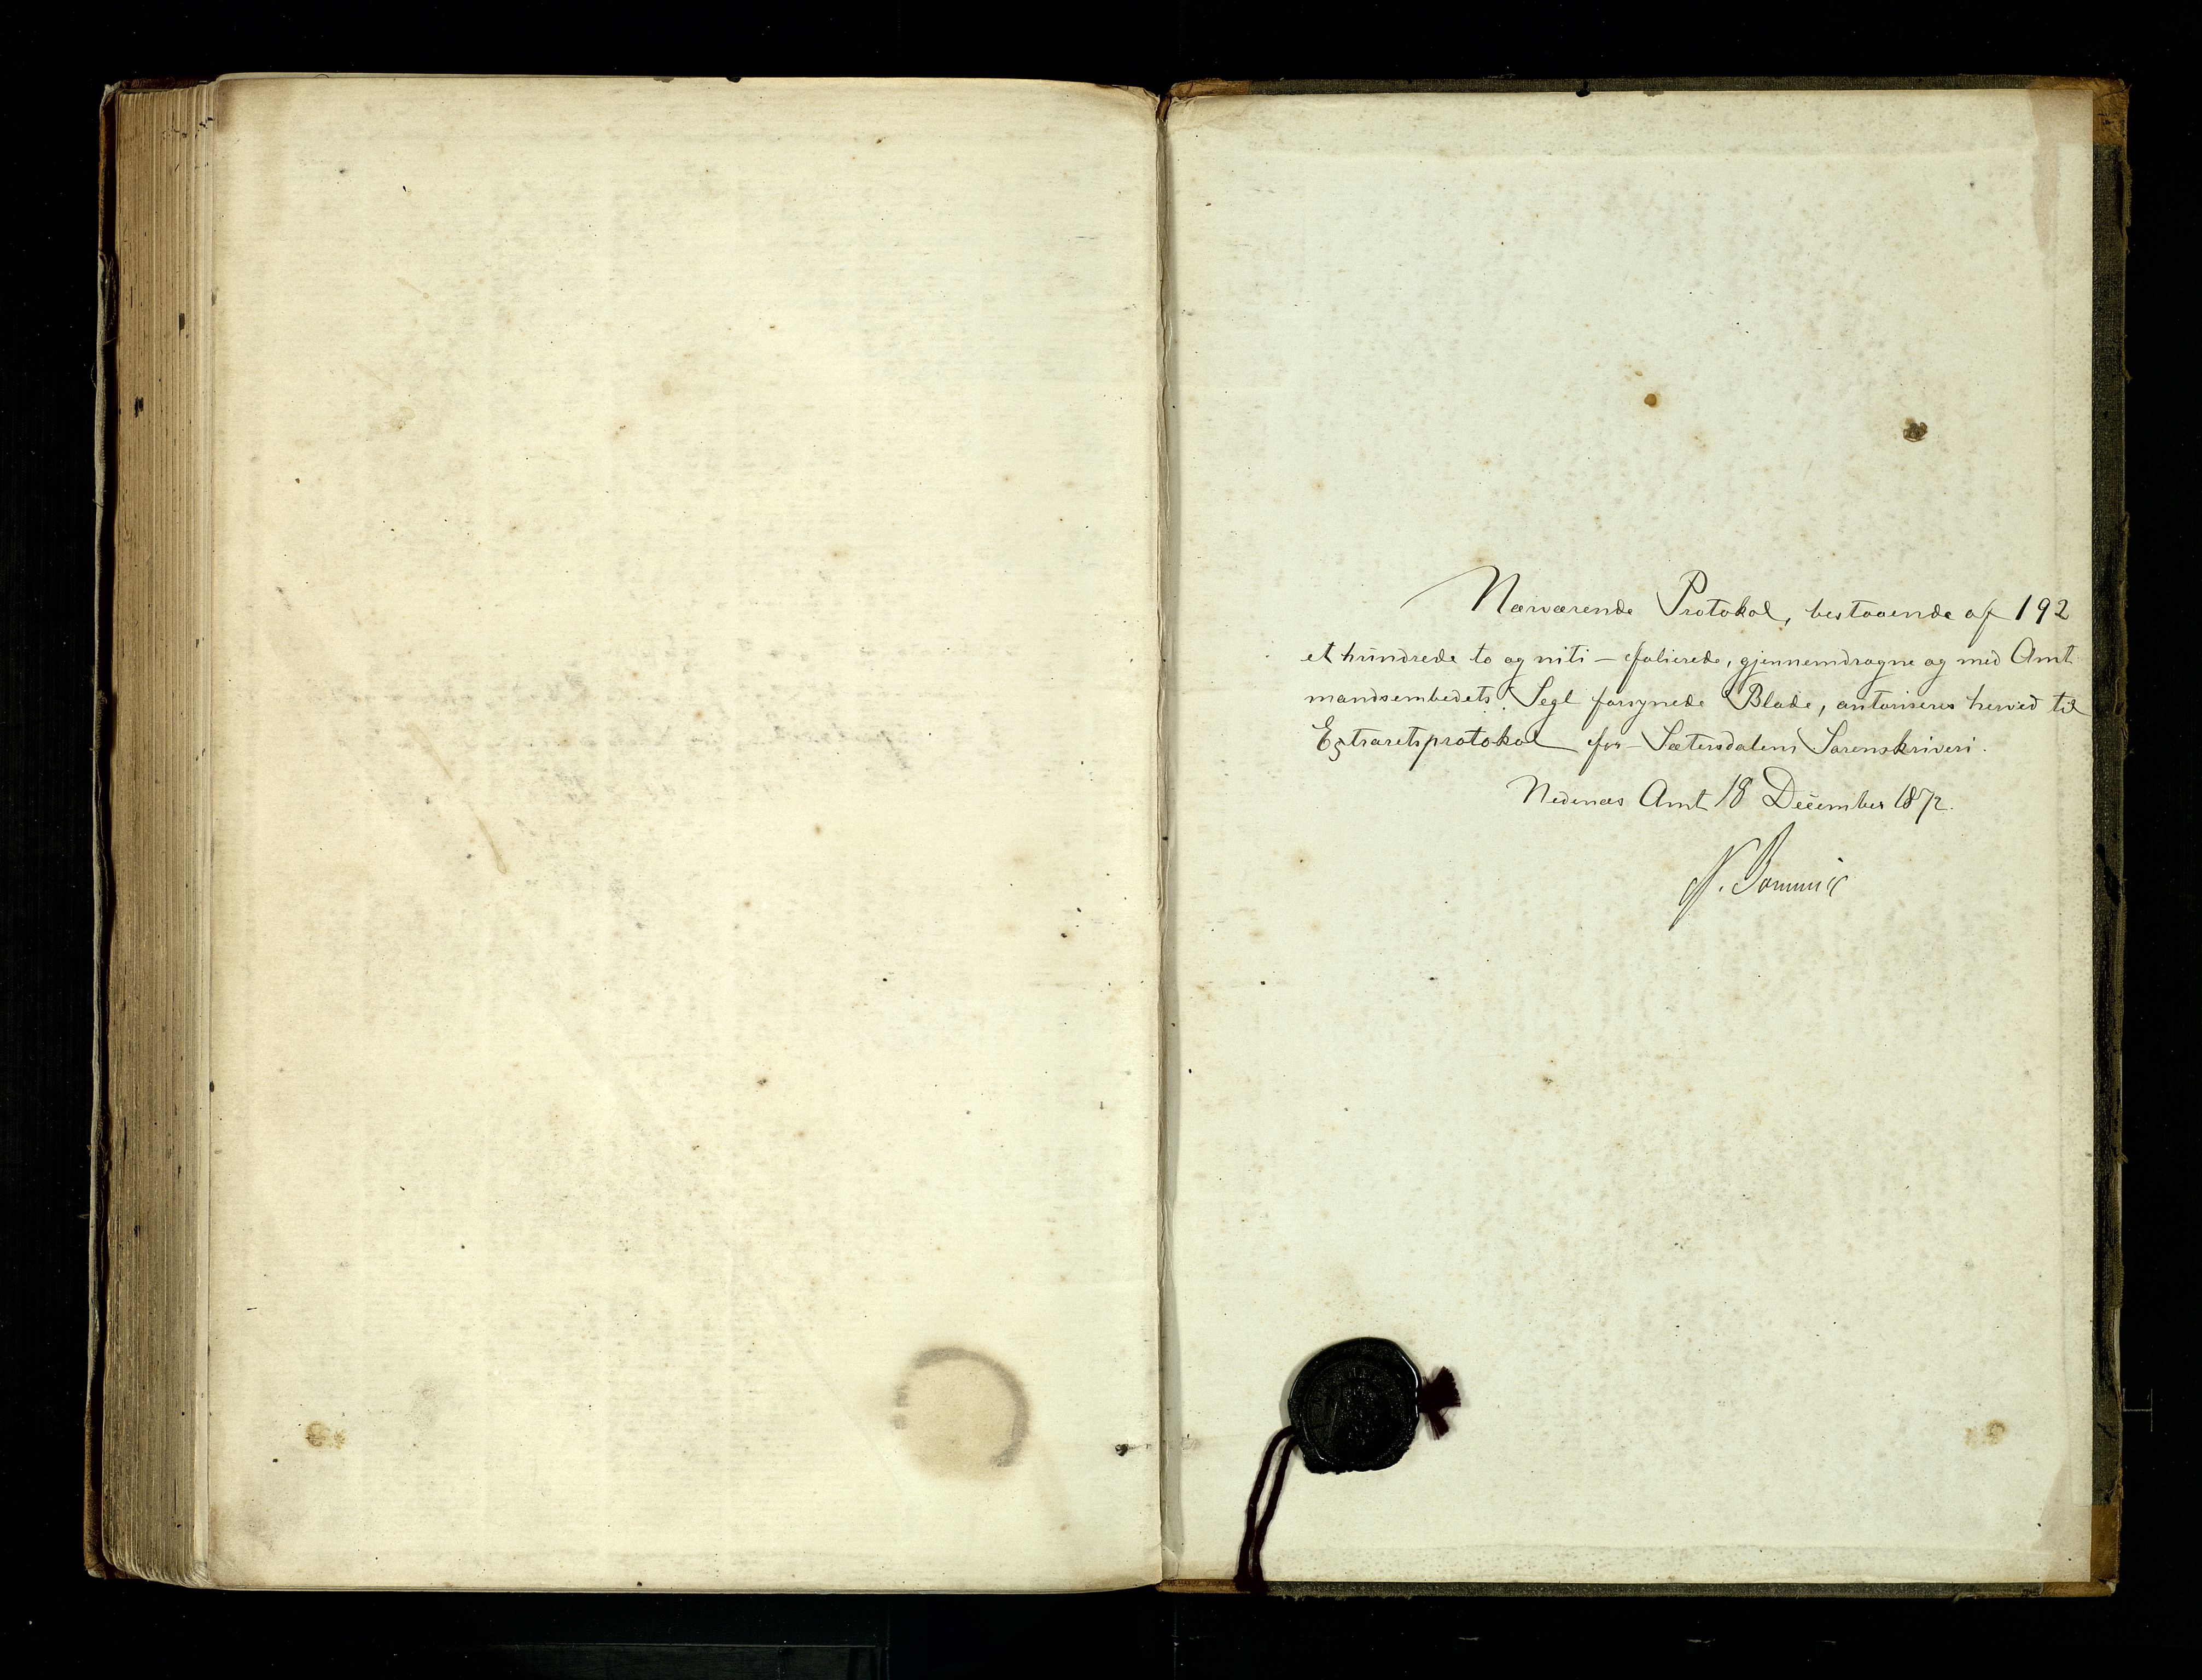 Nærværende Protokol, bestaaende af 192
et hundrede to og niti – folierede, gjennemdragne og med Amt
mandsembedets Segl forsynede Blade, autoriseres herved til
Extraretsprotokol for Sætersdalens Sorenskriveri.
Nedenæs Amt 18 December 1872.
N.